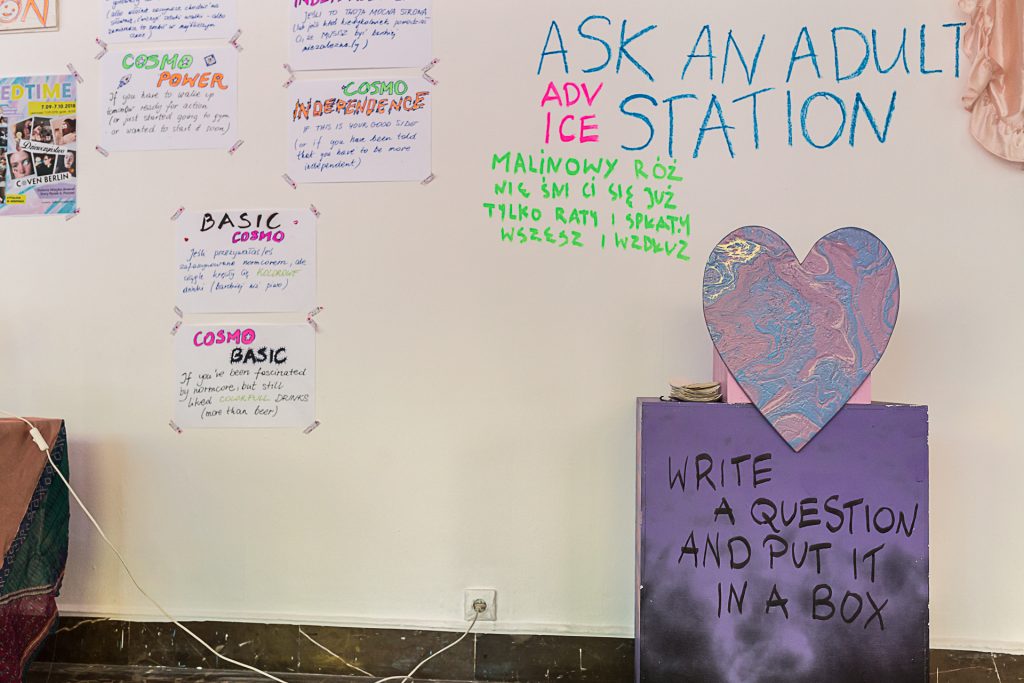 ON
(albo właśnie
COSMO
POWER
If you have to wake up
tomorrow ready for action
(or just started going to gym
or wanted to start it soon)
JEŚLI TO TWOJA MOCNA STRONA
(lub jeśli ktoś kiedykolwiek powiedział
Ci, że MUSISZ być bardziej
niezależna/y)
COSMO
INDEPENDENCE
IF THIS IS YOUR GOOD SIDE!
(or if you have been told
that you have to be more
independent)
EDTIME
7.09-7.10.2018
Dziewczyństwo
COVEN BERLIN
BASIC
COSMO
Jeśli przeżywałaś/eś
zafascynowanie normcorem, ale
ciągle kręciły Cię KOLOROWE
drinki (bardziej niż piwo)
COSMO
BASIC
If you've been fascinated
by normcore, but still
liked COLORFULL DRINKS
(more than beer)
ASK AN ADULT
ADV
ICE
STATION
MALINOWY RÓŻ
NIE ŚNI CI SIĘ JUŻ
TYLKO RATY I SPŁATY
WSZESZ I WZDŁUŻ
WRITE
A QUESTION
AND PUT IT
IN A BOX